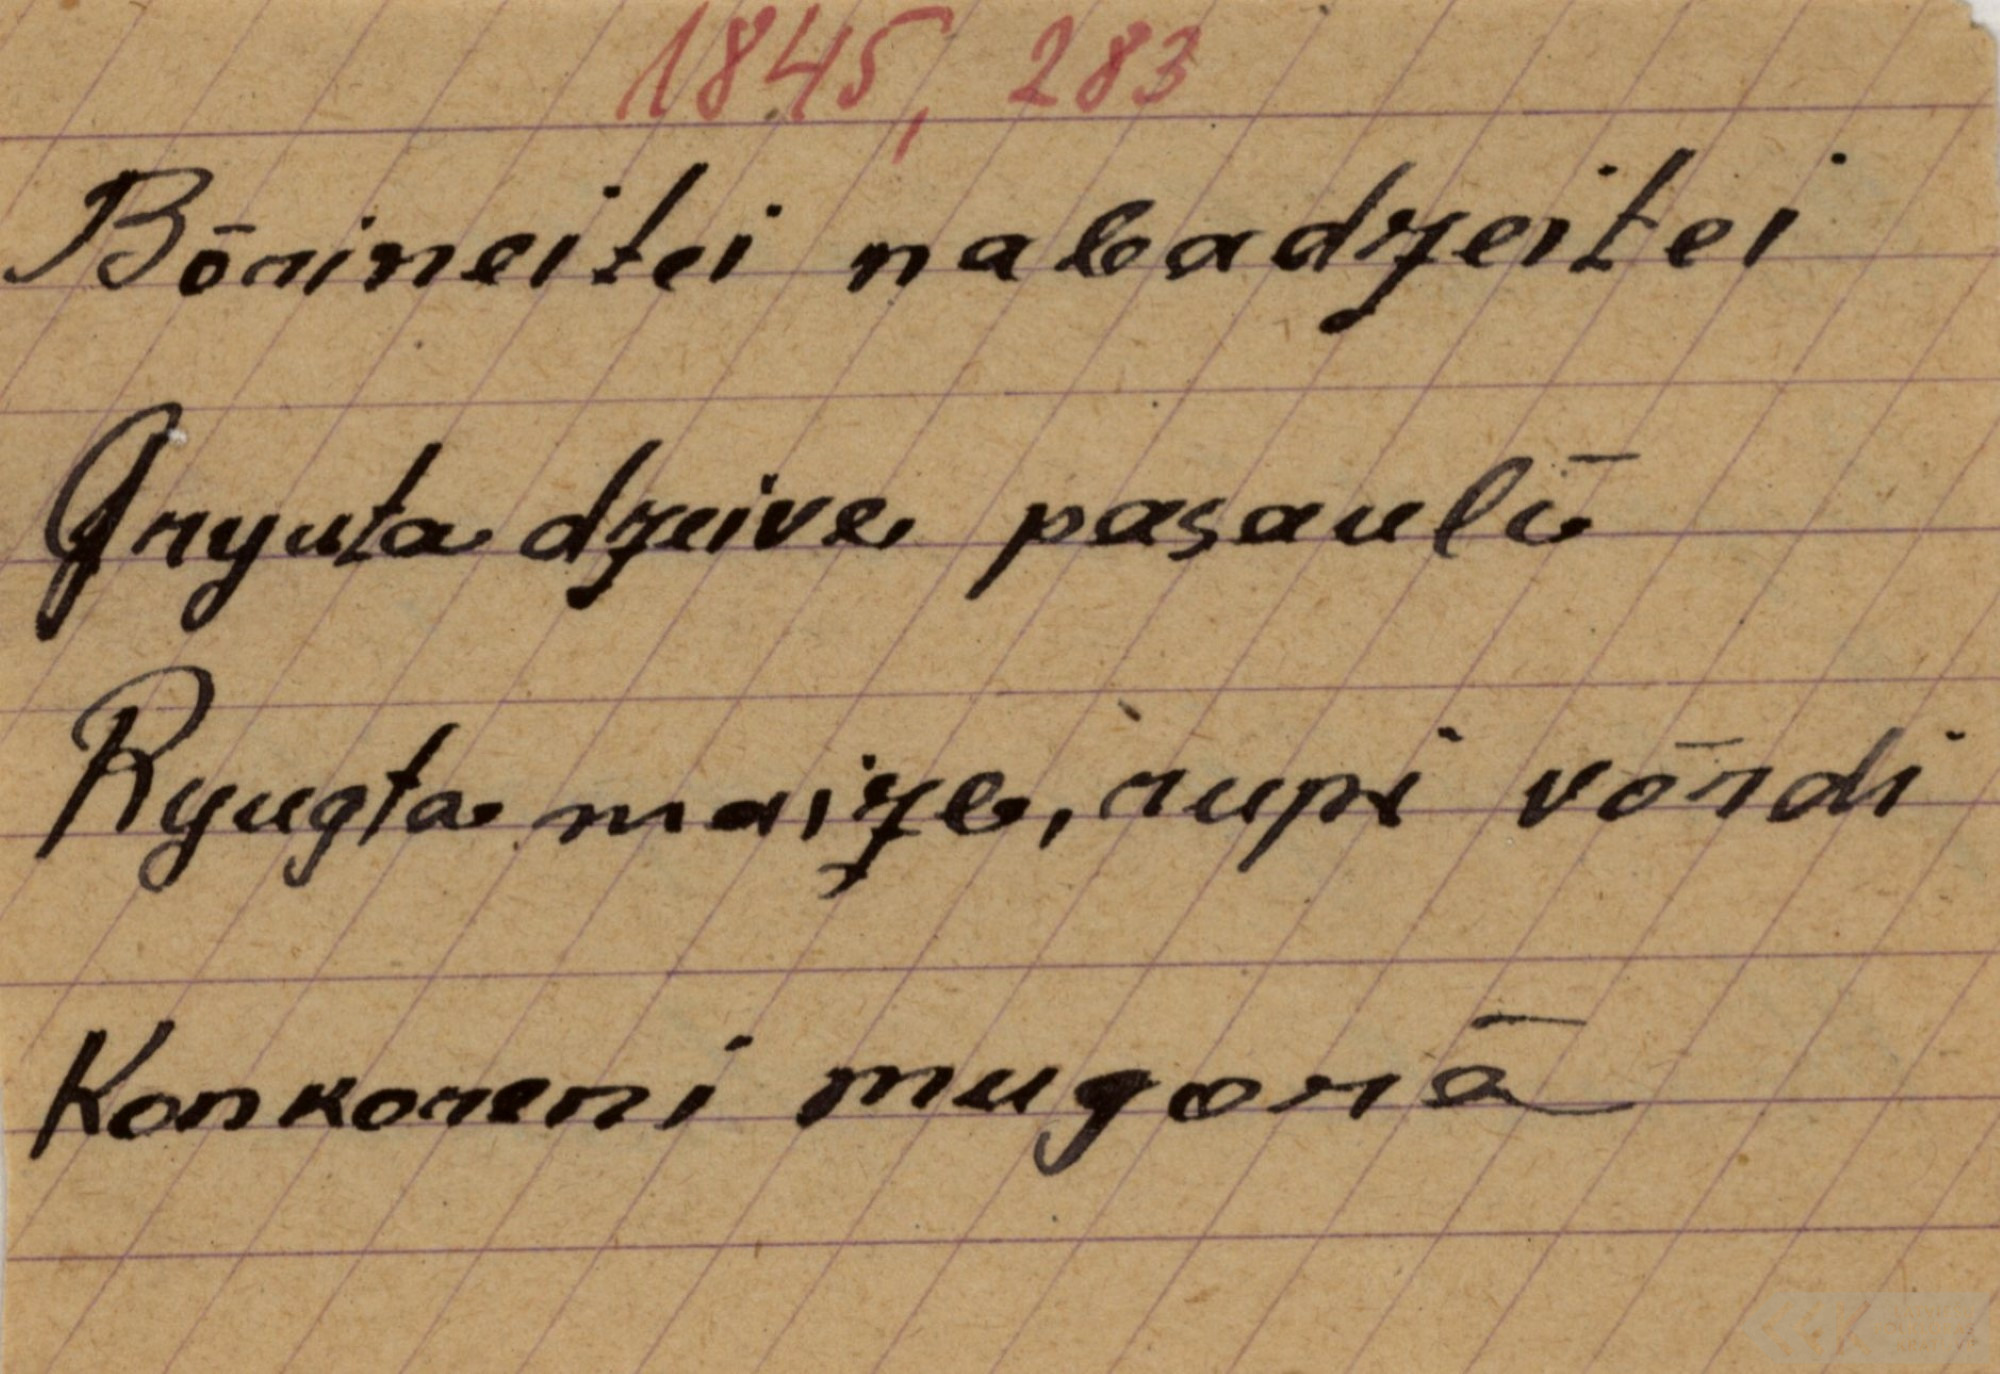 1845, 283
Bōrineitei nabadzeitei
Gryuta dzeive pasaulī
Ryugta maize, rupi vōrdi
Konkoreni mugorā